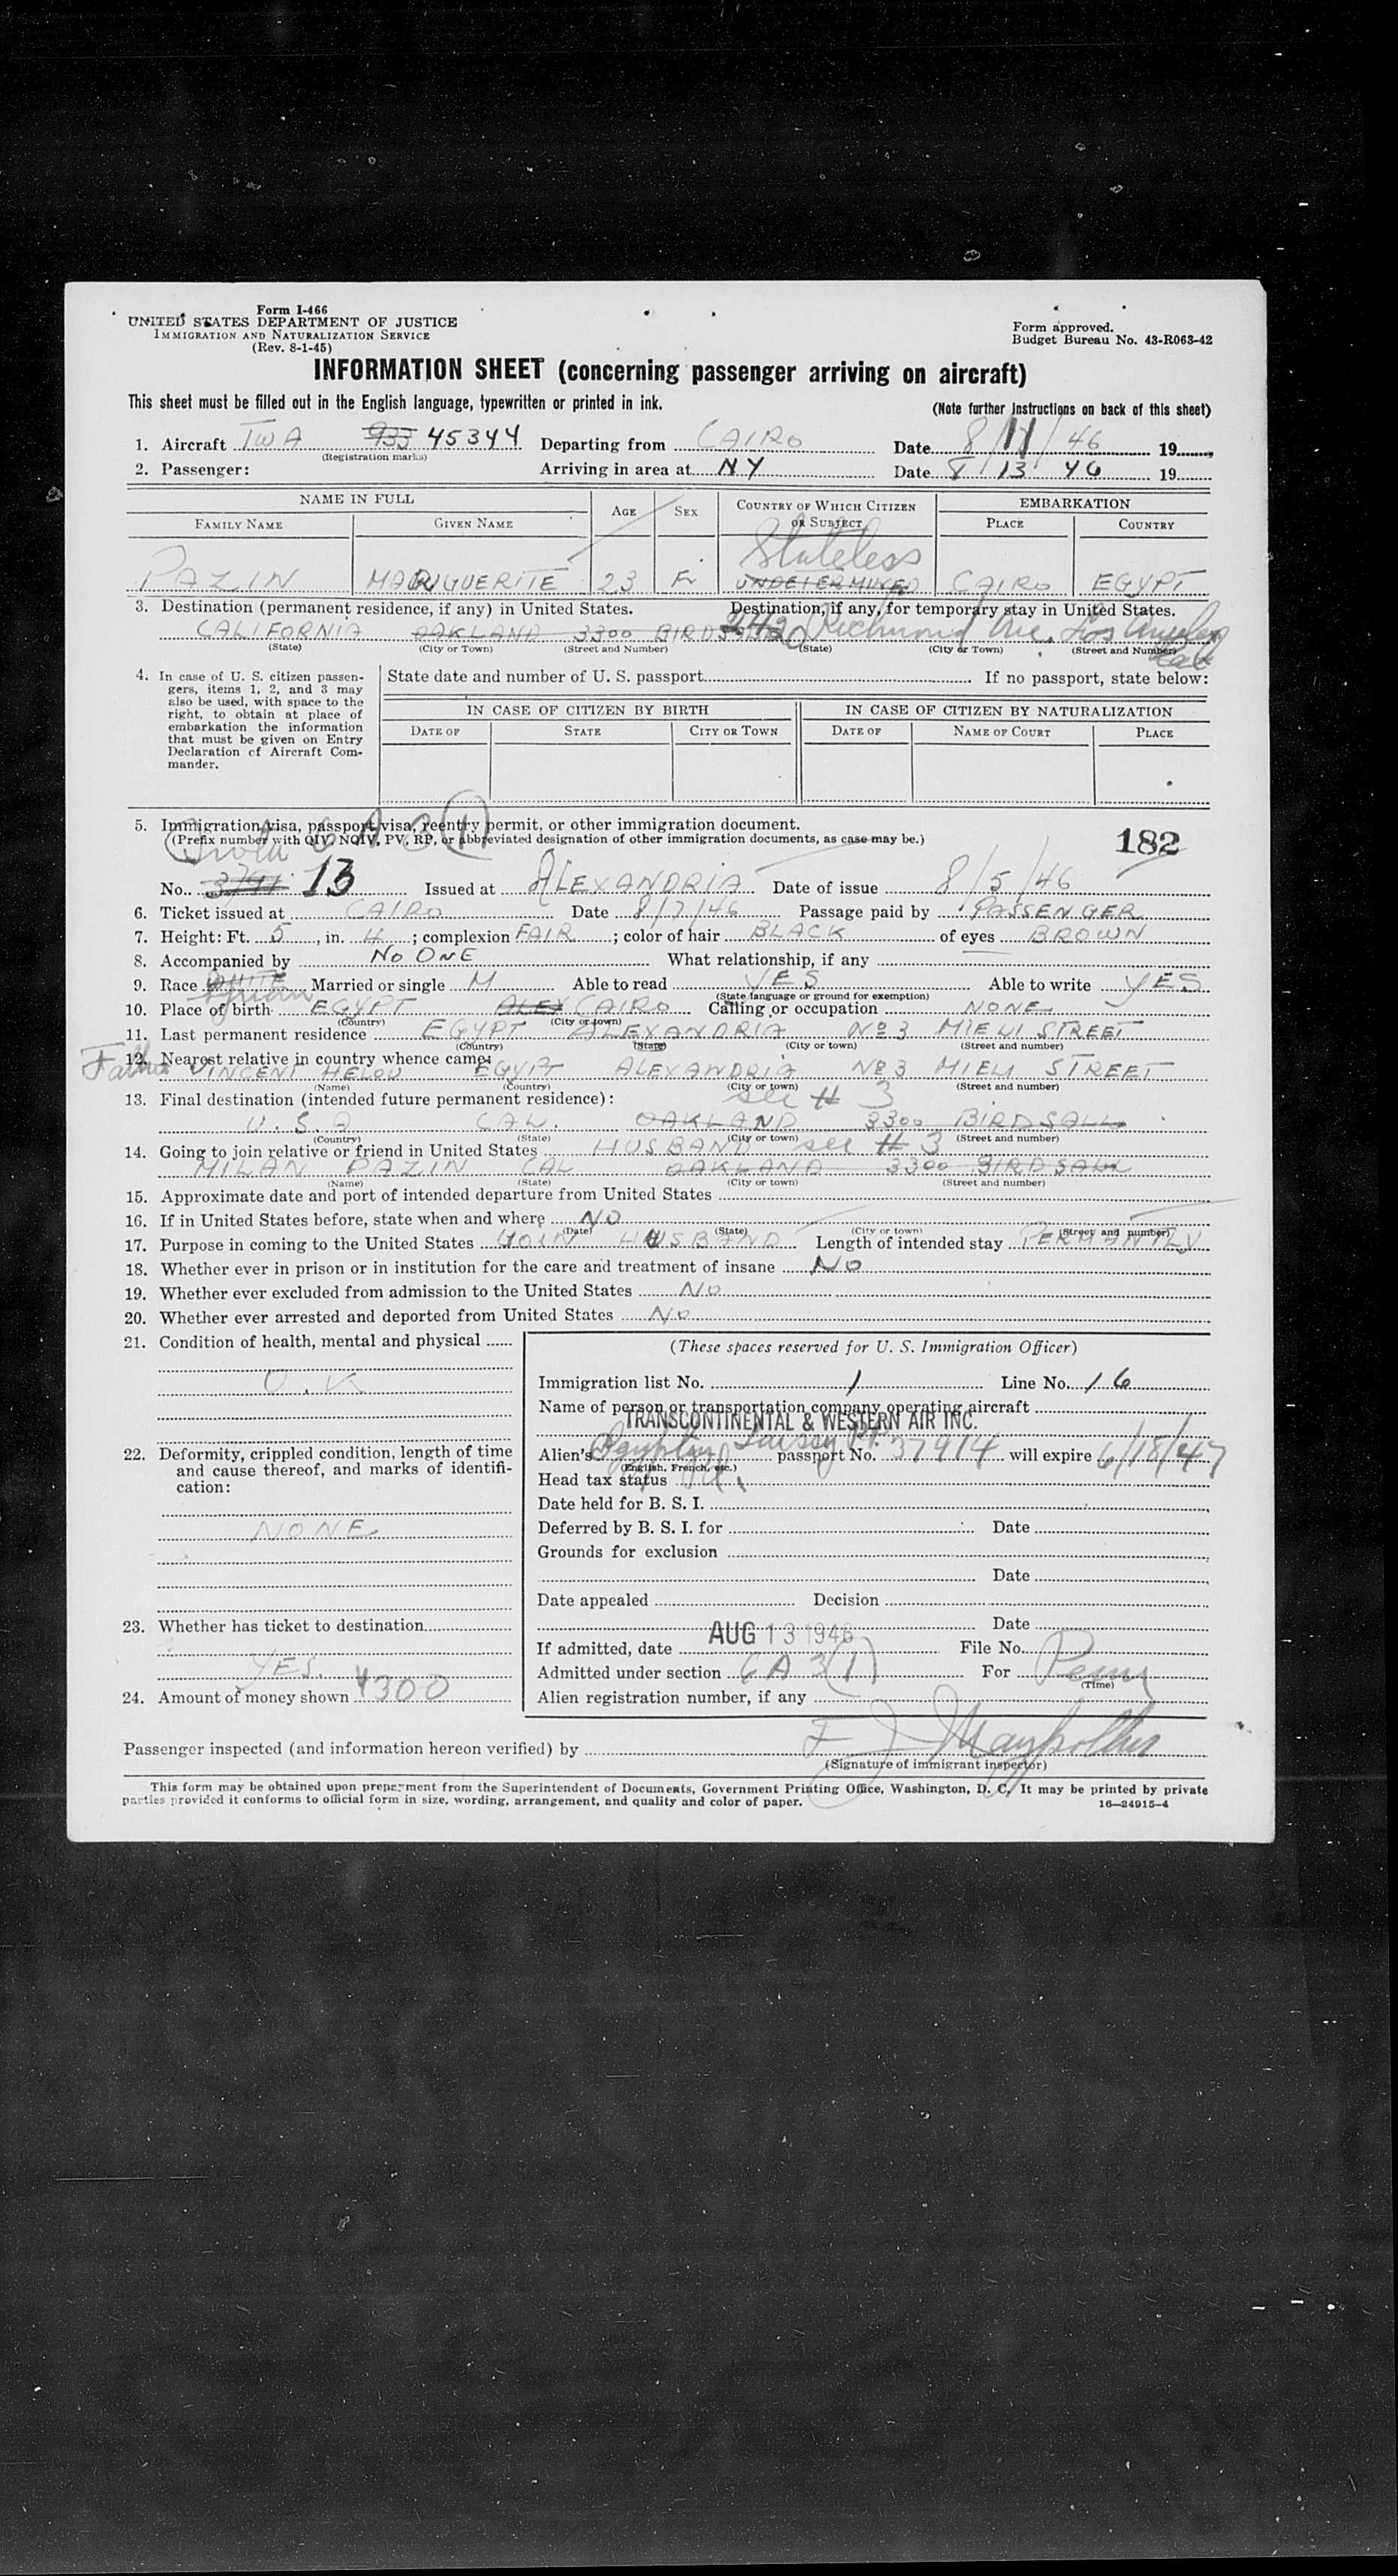 Form I-466
UNITED STATES DEPARTMENT OF JUSTICE
IMMIGRATION AND NATURALIZATION SERVICE
(Rev. 8-1-45)
Form approved.
Budget Bureau No. 43-R063-42
INFORMATION SHEET (concerning passenger arriving on aircraft)
This sheet must be filled out in the English language, typewritten or printed in ink.
(Note further instructions on back of this sheet)
1. Aircraft TWA 933 45344 Departing from CAIRO Date 8/11/46 19
(Registration marks)
2. Passenger: Arriving in area at NY Date 8 13 46 19
NAME IN FULL AGE SEX COUNTRY OF WHICH CITIZEN OR SUBJECT EMBARKATION
FAMILY NAME GIVEN NAME PLACE COUNTRY
Stateless
PAZIN MARGUERITE 23 F. UNDETERMINED CAIRO EGYPT
3. Destination (permanent residence, if any) in United States. Destination, if any, for temporary stay in United States.
CALIFORNIA OAKLAND 3300 BIRDSALL 2420 Richmond Ave. Los Angeles
(State) (City or Town) (Street and Number) (State) (City or Town) (Street and Number)
4. In case of U. S. citizen passengers, items 1, 2, and 3 may also be used, with space to the right, to obtain at place of embarkation the information that must be given on Entry Declaration of Aircraft Commander.
State date and number of U. S. passport If no passport, state below:
IN CASE OF CITIZEN BY BIRTH IN CASE OF CITIZEN BY NATURALIZATION
DATE OF STATE CITY OR TOWN DATE OF NAME OF COURT PLACE
5. Immigration visa, passport visa, reentry permit, or other immigration document.
(Prefix number with QIV, NQIV, PV, RP, or abbreviated designation of other immigration documents, as case may be.)
6 A 3 (1)
182
No. 3741 13 Issued at ALEXANDRIA Date of issue 8/5/46
6. Ticket issued at CAIRO Date 8/7/46 Passage paid by PASSENGER
7. Height: Ft. 5, in. 4; complexion FAIR; color of hair BLACK of eyes BROWN
8. Accompanied by NO ONE What relationship, if any
9. Race WHITE Syrian Married or single M Able to read YES Able to write YES
(State language or ground for exemption)
10. Place of birth EGYPT ALEX CAIRO Calling or occupation NONE
(Country) (City or town)
11. Last permanent residence EGYPT ALEXANDRIA No 3 MIELI STREET
(Country) (State) (City or town) (Street and number)
12. Nearest relative in country whence came:
Father VINCENT HELOU EGYPT ALEXANDRIA No 3 MIELI STREET
(Name) (Country) (City or town) (Street and number)
13. Final destination (intended future permanent residence): see # 3
U.S.A CAL. OAKLAND 3300 BIRDSALL
(Country) (State) (City or town) (Street and number)
14. Going to join relative or friend in United States HUSBAND see # 3
MILAN PAZIN CAL OAKLAND 3300 BIRDSALL
(Name) (State) (City or town) (Street and number)
15. Approximate date and port of intended departure from United States
16. If in United States before, state when and where NO
(Date) (State) (City or town) (Street and number)
17. Purpose in coming to the United States GOIN HUSBAND Length of intended stay PERMANTLY
18. Whether ever in prison or in institution for the care and treatment of insane NO
19. Whether ever excluded from admission to the United States NO
20. Whether ever arrested and deported from United States NO
21. Condition of health, mental and physical
O.K
22. Deformity, crippled condition, length of time and cause thereof, and marks of identification:
NONE
23. Whether has ticket to destination
YES.
24. Amount of money shown $300
(These spaces reserved for U. S. Immigration Officer)
Immigration list No. 1 Line No. 16
Name of person or transportation company operating aircraft
TRANSCONTINENTAL & WESTERN AIR INC.
Alien's Egyptian passport No. 37914 will expire 6/18/47
(English, French, etc.)
Head tax status Pd.
Date held for B. S. I.
Deferred by B. S. I. for Date
Grounds for exclusion
Date
Date appealed Decision
Date
If admitted, date AUG 13 1946 File No.
Admitted under section 6 A 3 (1) For Perm
(Time)
Alien registration number, if any
Passenger inspected (and information hereon verified) by
(Signature of immigrant inspector)
This form may be obtained upon prepayment from the Superintendent of Documents, Government Printing Office, Washington, D. C. It may be printed by private
parties provided it conforms to official form in size, wording, arrangement, and quality and color of paper. 16—24915-4